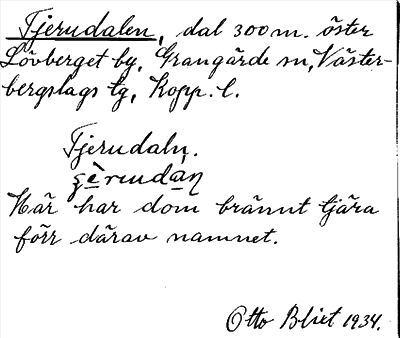 Tjerudalen, dal 300 m. öster
Lövberget by, Grangärde sn, Väster-
bergslags tg, Kopp. l.
Tjerudaln.
Här har dom brännt tjära
förr därav namnet.
Otto Blixt 1934.